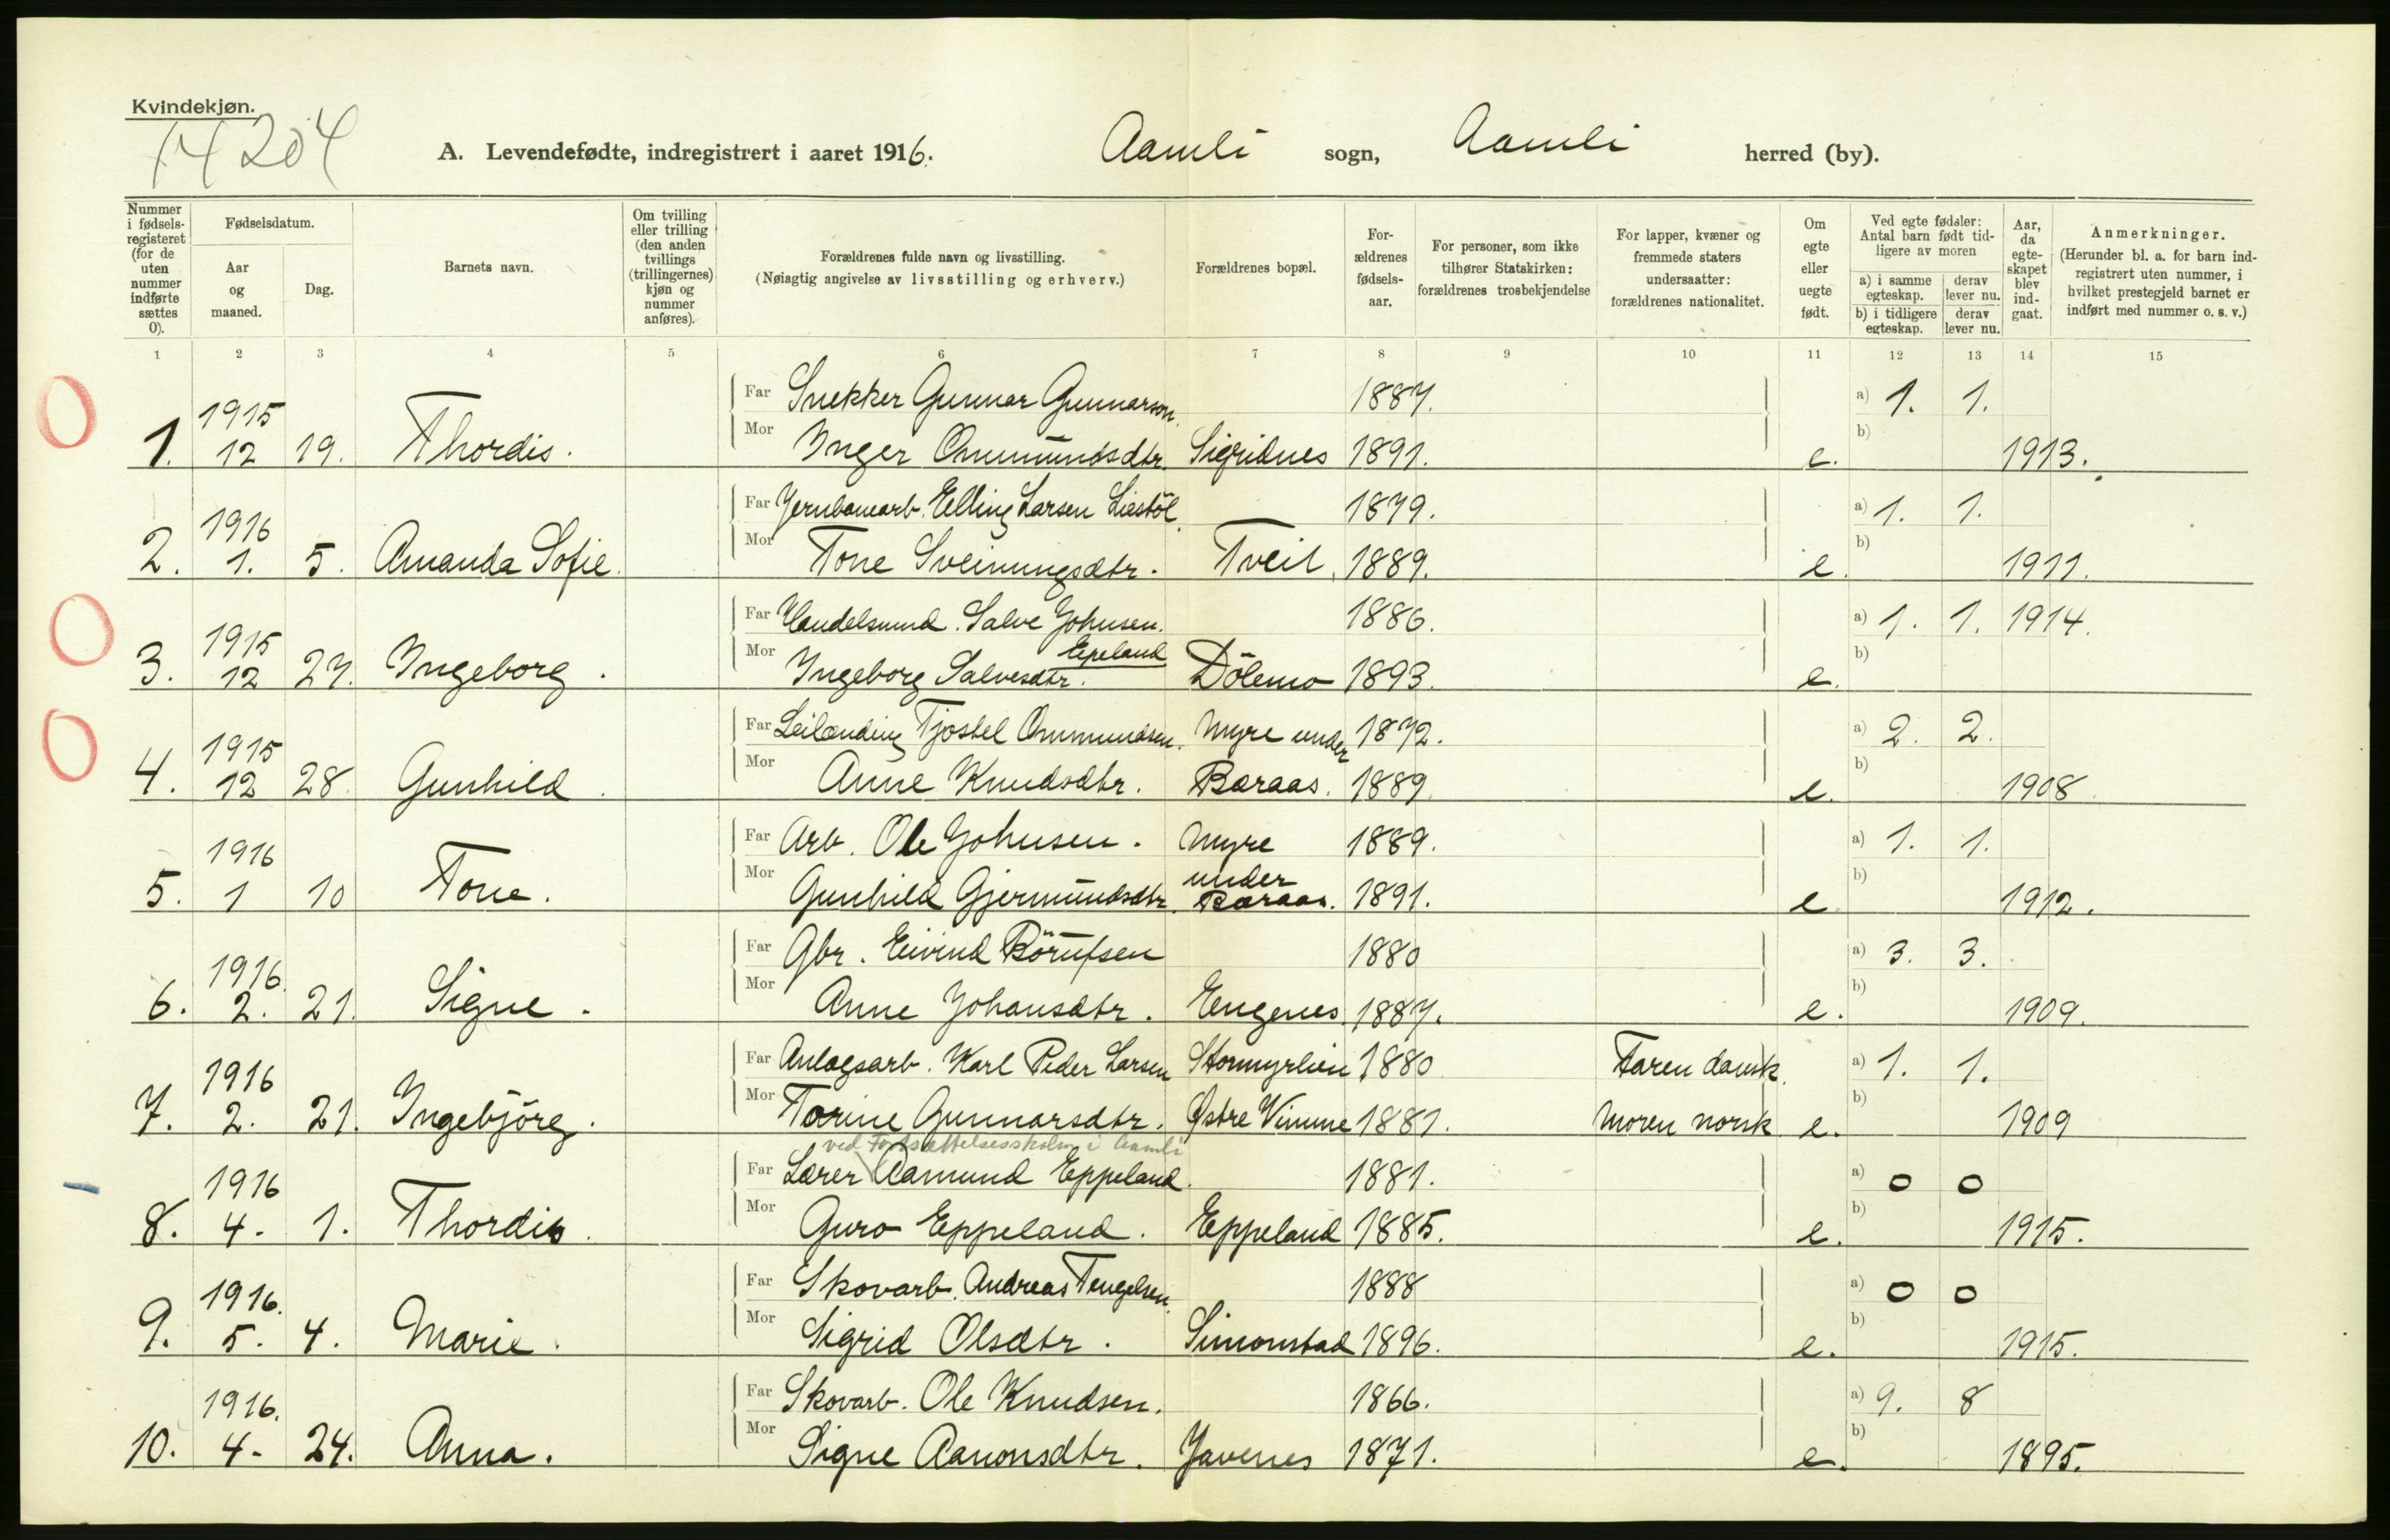 Kvindekjøn.
14204
A. Levendefødte, indregistrert i aaret 1916. Aamli sogn, Aamli herred (by).
Nummer i fødsels-registeret (for de uten nummer indførte sættes 0).
Fødselsdatum.
Aar og maaned.
Dag.
Barnets navn.
Om tvilling eller trilling (den anden tvillings (trillingernes) kjøn og nummer anføres).
Forældrenes fulde navn og livsstilling.
(Nøiagtig angivelse av livsstilling og erhverv.)
Forældrenes bopæl.
For-ældrenes fødsels-aar.
For personer, som ikke tilhører Statskirken: forældrenes trosbekjendelse
For lapper, kvæner og fremmede staters undersaatter: forældrenes nationalitet.
Om egte eller uegte født.
Ved egte fødsler: Antal barn født tid-ligere av moren
a) i samme egteskap. derav lever nu.
b) i tidligere egteskap. derav lever nu.
Aar, da egte-skapet blev ind-gaat.
Anmerkninger.
(Herunder bl. a. for barn ind-registrert uten nummer, i hvilket prestegjeld barnet er indført med nummer o. s. v.)
1 2 3 4 5 6 7 8 9 10 11 12 13 14 15
1915 Far Snekker Gunnar Gunnarson. 1887. a) 1. 1.
1. 12 19. Thordis. Mor Inger Ommundsdtr. Sigridnes 1891. e. b) 1913.
1916 Far Jernbanearb. Elling Larsen Liestöl. 1879. a) 1. 1.
2. 1. 5. Amanda Sofie. Mor Tone Sveinungsdtr. Tveit. 1889. e. b) 1911.
1915 Far Handelsmand. Salve Johnsen. 1886. a) 1. 1. 1914.
Epeland
3. 12 27. Ingeborg. Mor Ingeborg Salvesdtr. Dölemo 1893. e. b)
1915 Far Leilænding Tjostel Ommundsen. Myre under 1872. a) 2. 2.
4. 12 28. Gunhild. Mor Anne Knudsdtr. Baraas. 1889. e. b) 1908
1916 Far Arb. Ole Johnsen. Myre 1889. a) 1. 1.
5. 1 10 Tone. Mor Gunhild Gjermundsdtr. under Baraas. 1891. e b) 1912.
1916. Far Gbr. Eivind Börufsen 1880 a) 3. 3.
6. 2. 21. Signe. Mor Anne Johansdtr. Engenes. 1887. e. b) 1909.
1916 Far Anlagsarb. Karl Peder Larsen Stormyrlien 1880 Faren dansk. a) 1. 1.
7. 2. 21. Ingebjörg. Mor Torine Gunnarsdtr. Østre Vimme 1881. Moren norsk e. b) 1909
ved Fortsættelsesskolen i Aamli
1916 Far Lærer Aamund Eppeland. 1881. a) 0 0
8. 4. 1. Thordis. Mor Guro Eppeland. Eppeland 1885. e. b) 1915.
1916. Far Skovarb. Andreas Tengelsen. 1888 a) 0 0
9. 5. 4. Marie. Mor Sigrid Olsdtr. Simonstad 1896. e. b) 1915.
1916. Far Skovarb. Ole Knudsen. 1866. a) 9. 8
10. 4. 24. Anna. Mor Signe Aanonsdtr. Javenes 1871. e. b) 1895.